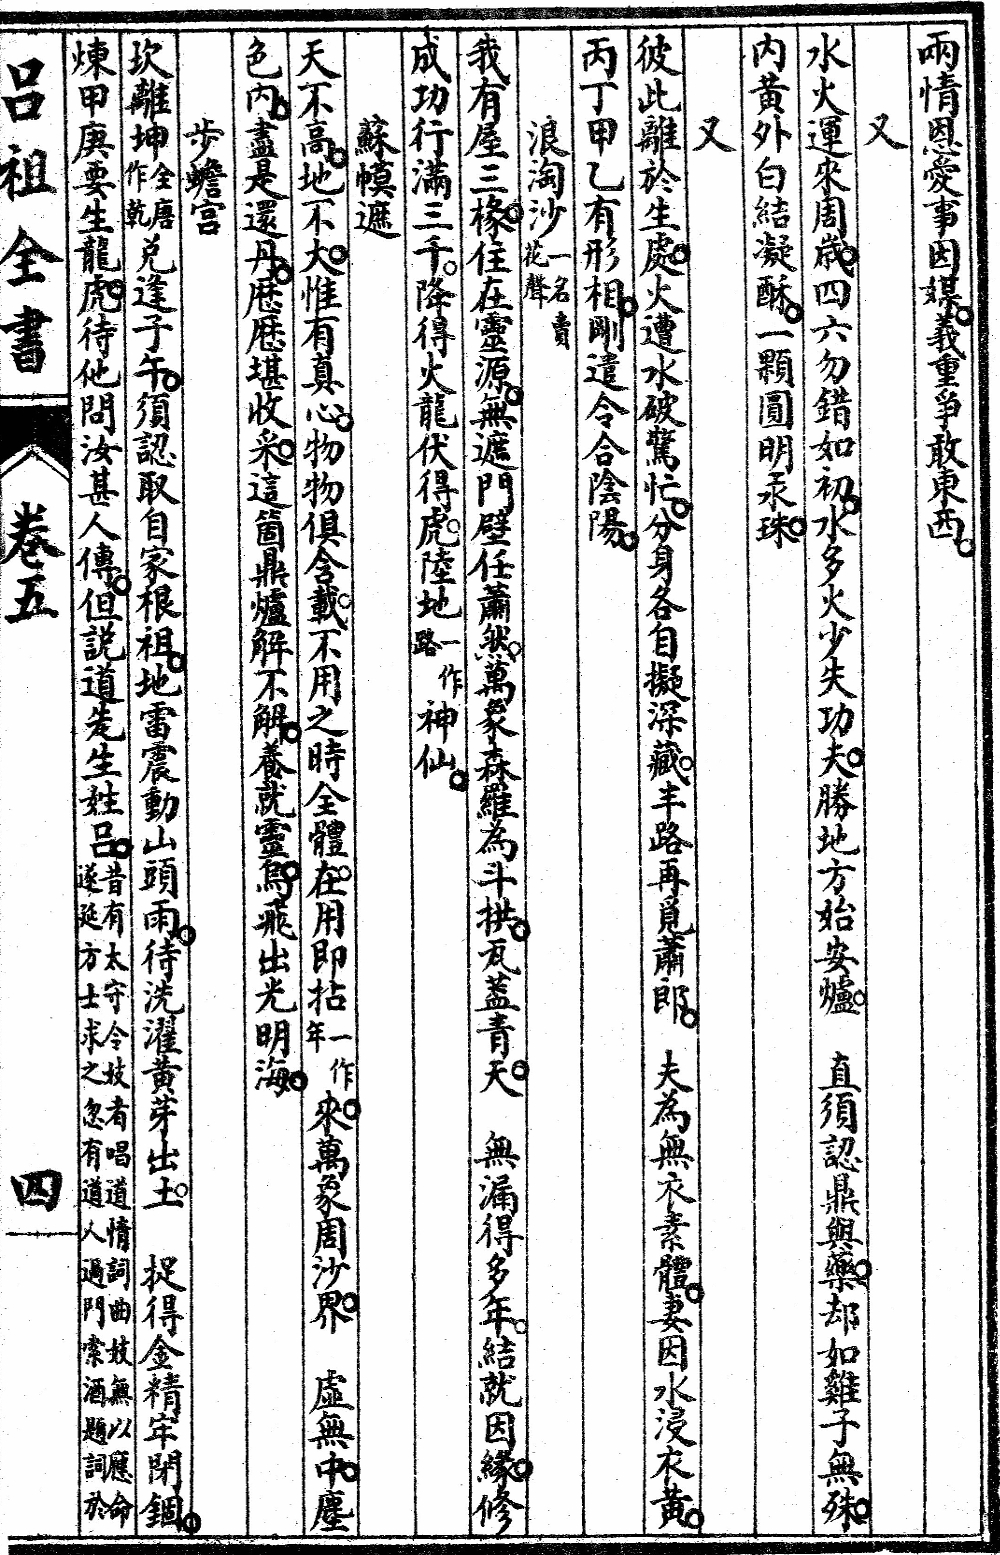 兩情恩愛事因媒義重爭敢東西
又
水火運來周歲四六勿錯如初水多火少失功夫勝地方始安爐　直須認鼎與藥却如雞子無殊
内黃外白結凝酥一顆圓明汞珠
又
彼此離於生處火遭水破驚忙分身各自擬深藏丰路再覓蕭郎　夫為無衣素體妻因水浸衣黃
丙丁甲乙有形相剛遣令合陰陽
浪淘沙一名賣花聲
我有屋三椽住在靈源無遮門壁任蕭然萬象森羅為斗拱瓦蓋青天　無漏得多年結就因緣修
成功行滿三千降得火龍伏得虎陸地一作路神仙
蘇幙遮
天不高地不大惟有真心物物俱含載不用之時全體在用即拈一作年來萬象周沙界　虛無中塵
色内盡是還丹厯厯堪收采這箇鼎爐解不解養就靈烏飛出光明海
步蟾宮
坎離坤全唐作乾兌逢子午須認取自家根祖地雷震動山頭雨待洗濯黃芽出土　捉得金精牢閉錮
煉甲庚要生龍虎待他問汝甚人傳但説道先生姓呂昔有太守令妓者唱道情詞曲妓無以應命遂延方士求之忽有道人過門索酒題詞於
呂祖全書
卷五
四